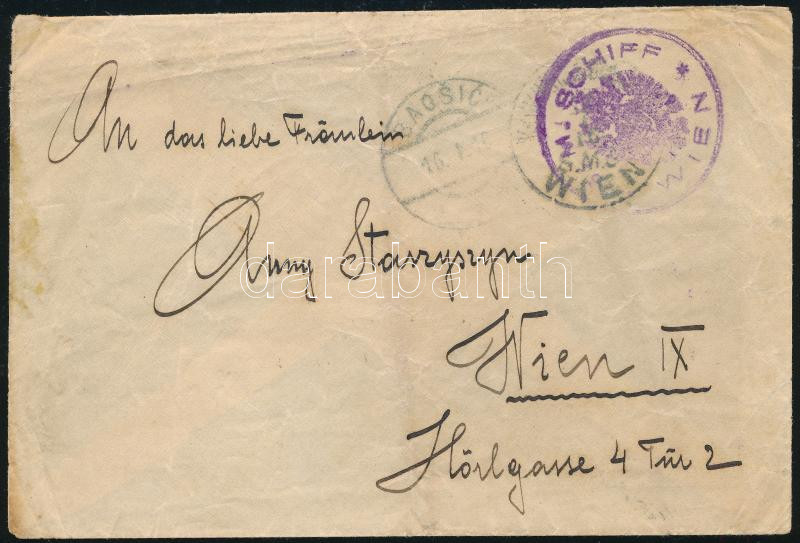 SCHIFF * WIEN
BAOŠIĆ
16.
S.M.S.
WIEN
An das liebe Fräulein
Anny Stavryszyn
darabanth
Wien IX
Hörlgasse 4 Tür 2